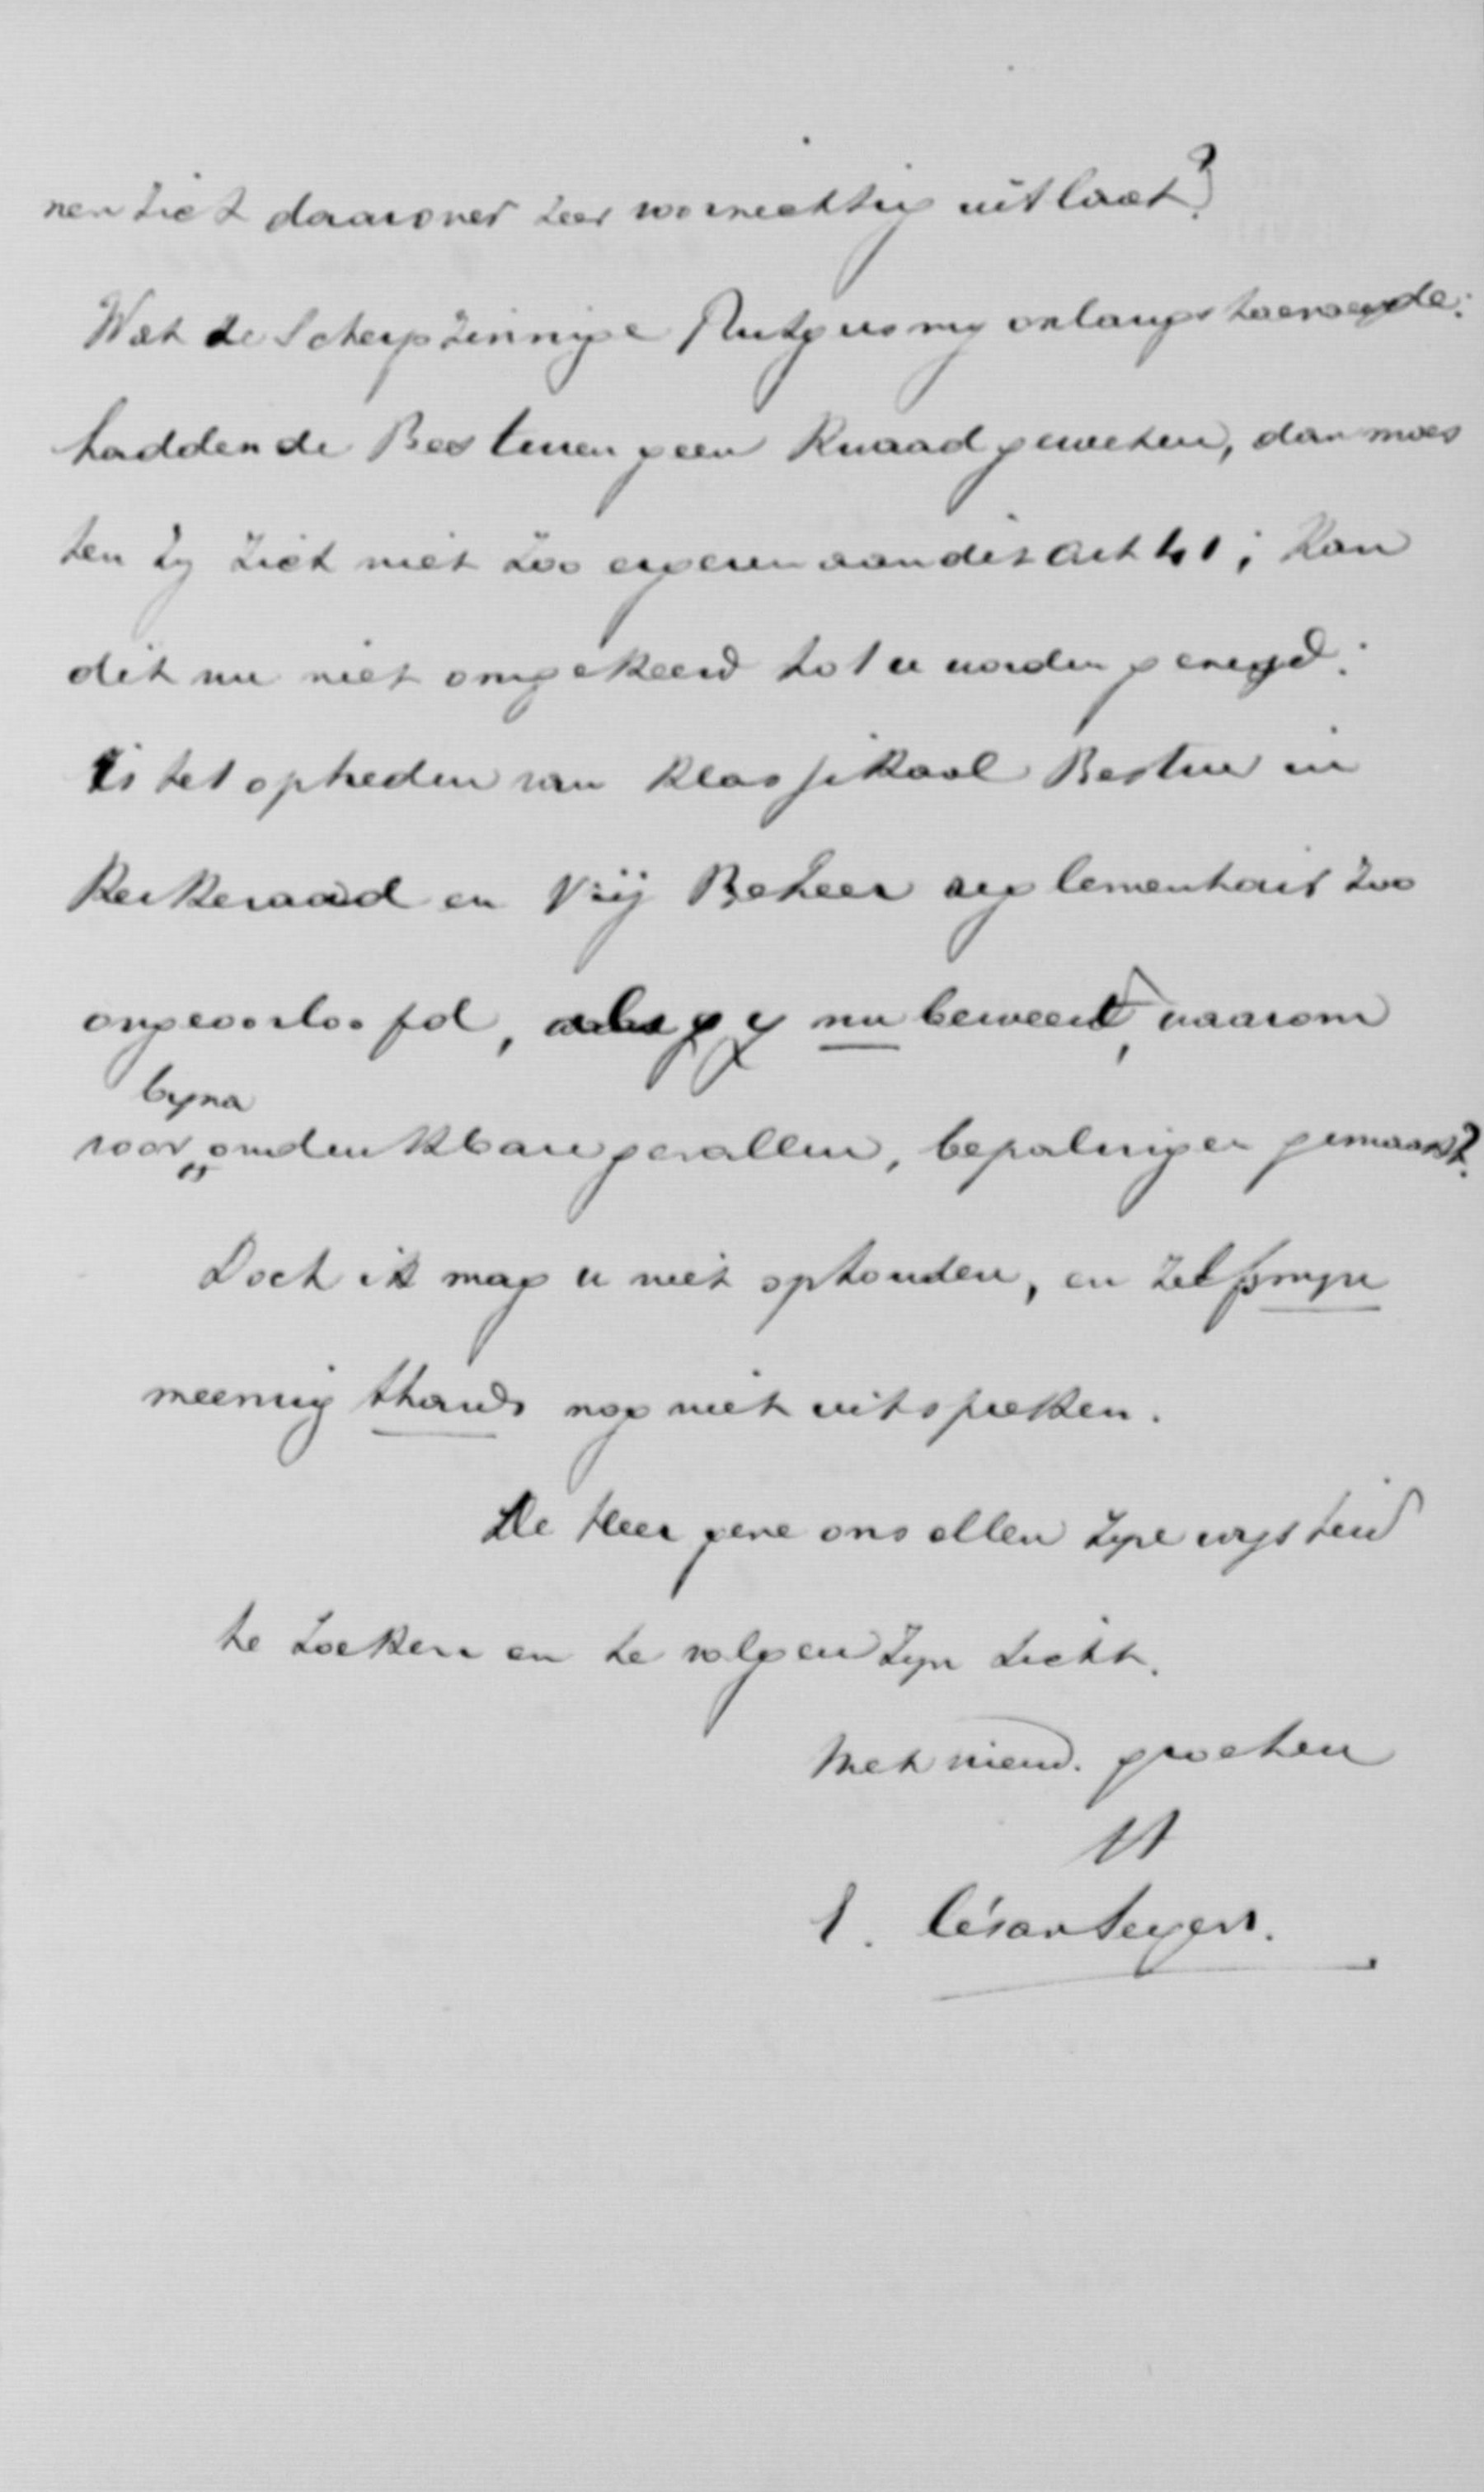 nen zich daarover zeer voorzichtig uitlaat?
Wat de Scherpzinnige Rutgers my onlangs toevoegde:
hadden de Besturen geen kwaad geweten, dan moes
ten zy zich niet zoo ergeren aan dit art 41; kan
dit nu niet omgekeerd tot u worden gezegd:
Is het optreden van Klassikaal Bestuur in
Kerkeraad en Vrij Beheer reglementair zoo
ongeoorloofd, als gy nu beweert, waarom
byna
voor ondenkbare gevallen, bepalingen gemaakt?
Doch ik mag u niet ophouden, en zelfs myn
meening thans nog niet uitspreken.
De Heer geve ons allen Zyne wysheid
te zoeken en te volgen Zyn licht.
Met vriend. groeten
tt
C. César Segers.